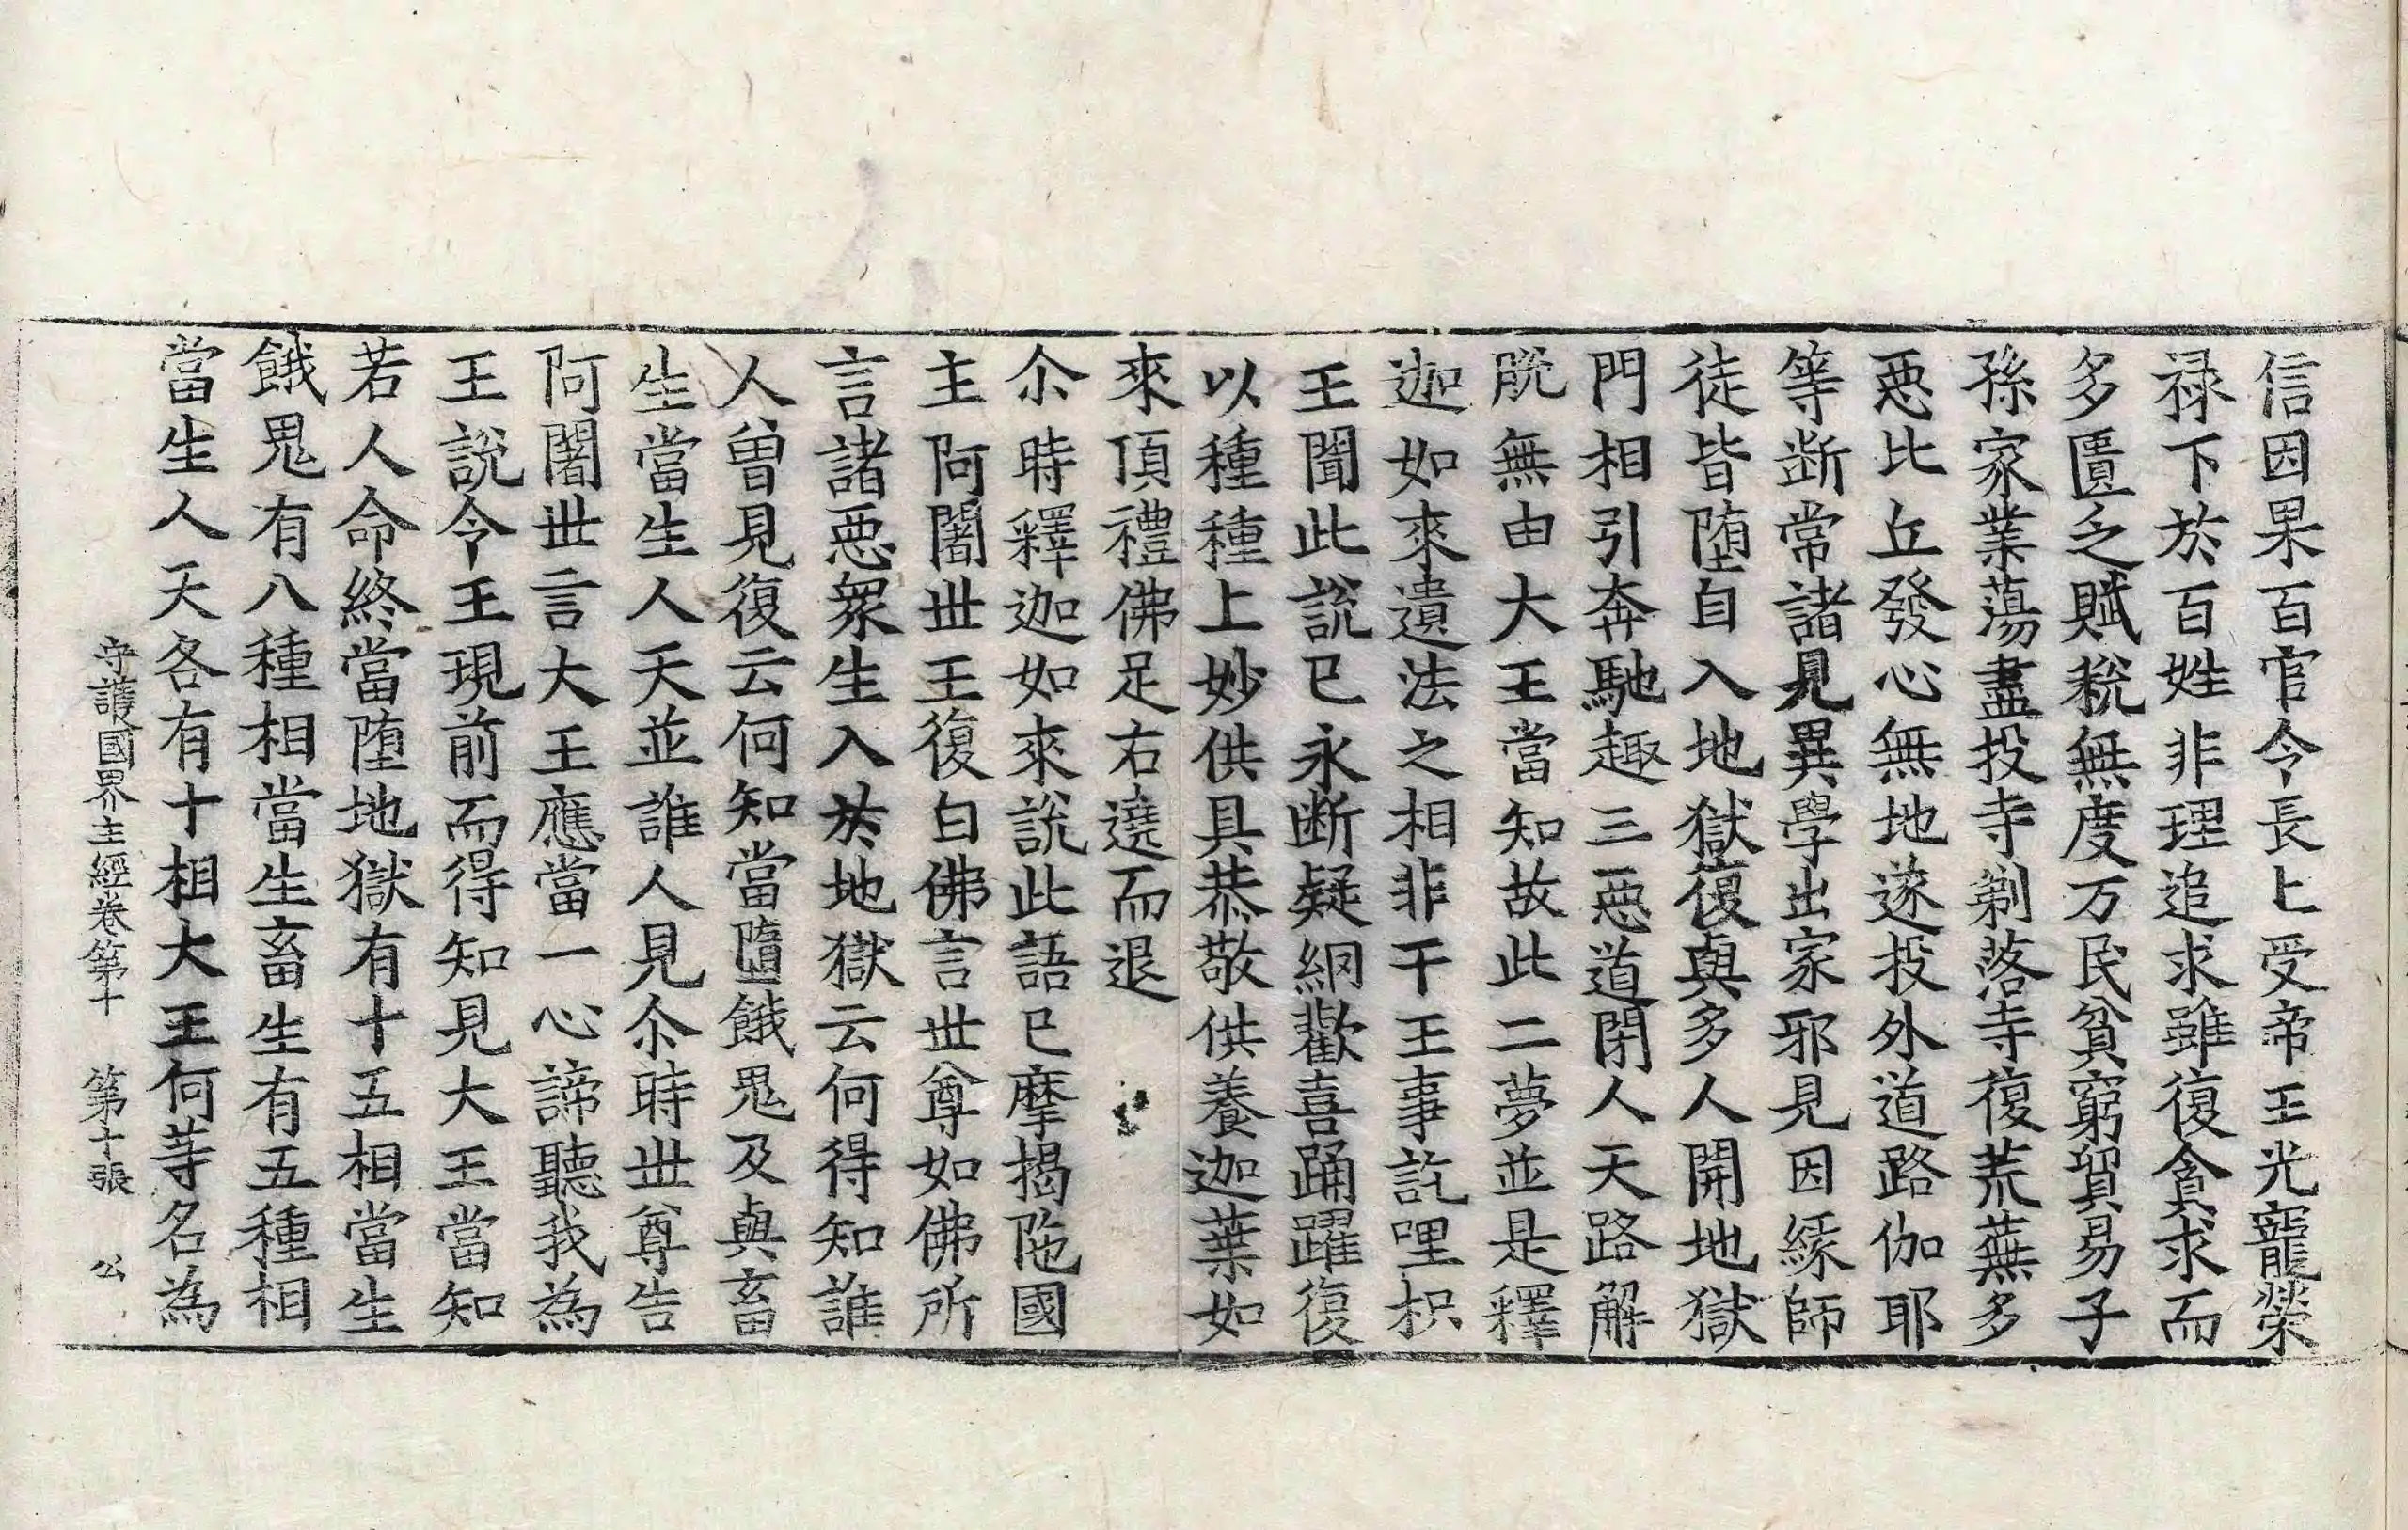 信因果百官令長上受帝王光寵榮
禄下於百姓非理追求雖復貪求而
多匱乏賦稅無度万民貧窮貿易子
孫家業蕩盡投寺剃落寺復荒蕪多
惡比丘發心無地遂投外道路伽耶
等断常諸見異學出家邪見因緣師
徒皆堕自入地獄復與多人開地獄
門相引奔馳趣三惡道閉人天路解
脫無由大王當知故此二夢並是釋
迦如來遺法之相非干王事訖哩枳
王聞此説已永断疑網歡喜踊躍復
以種種上妙供具恭敬供養迦葉如
來頂禮佛足右遶而退
尒時釋迦如來說此語已摩揭陁國
主阿闍世王復白佛言世尊如佛所
言諸惡衆生入於地獄云何得知誰
人曾見復云何知當墮餓鬼及與畜
生當生人天並誰人見尒時世尊告
阿闍世言大王應當一心諦聽我為
王說令王現前而得知見大王當知
若人命終當堕地獄有十五相當生
餓鬼有八種相當生畜生有五種相
當生人天各有十相大王何䓁名為
守護國界主經卷第十　第十張　公